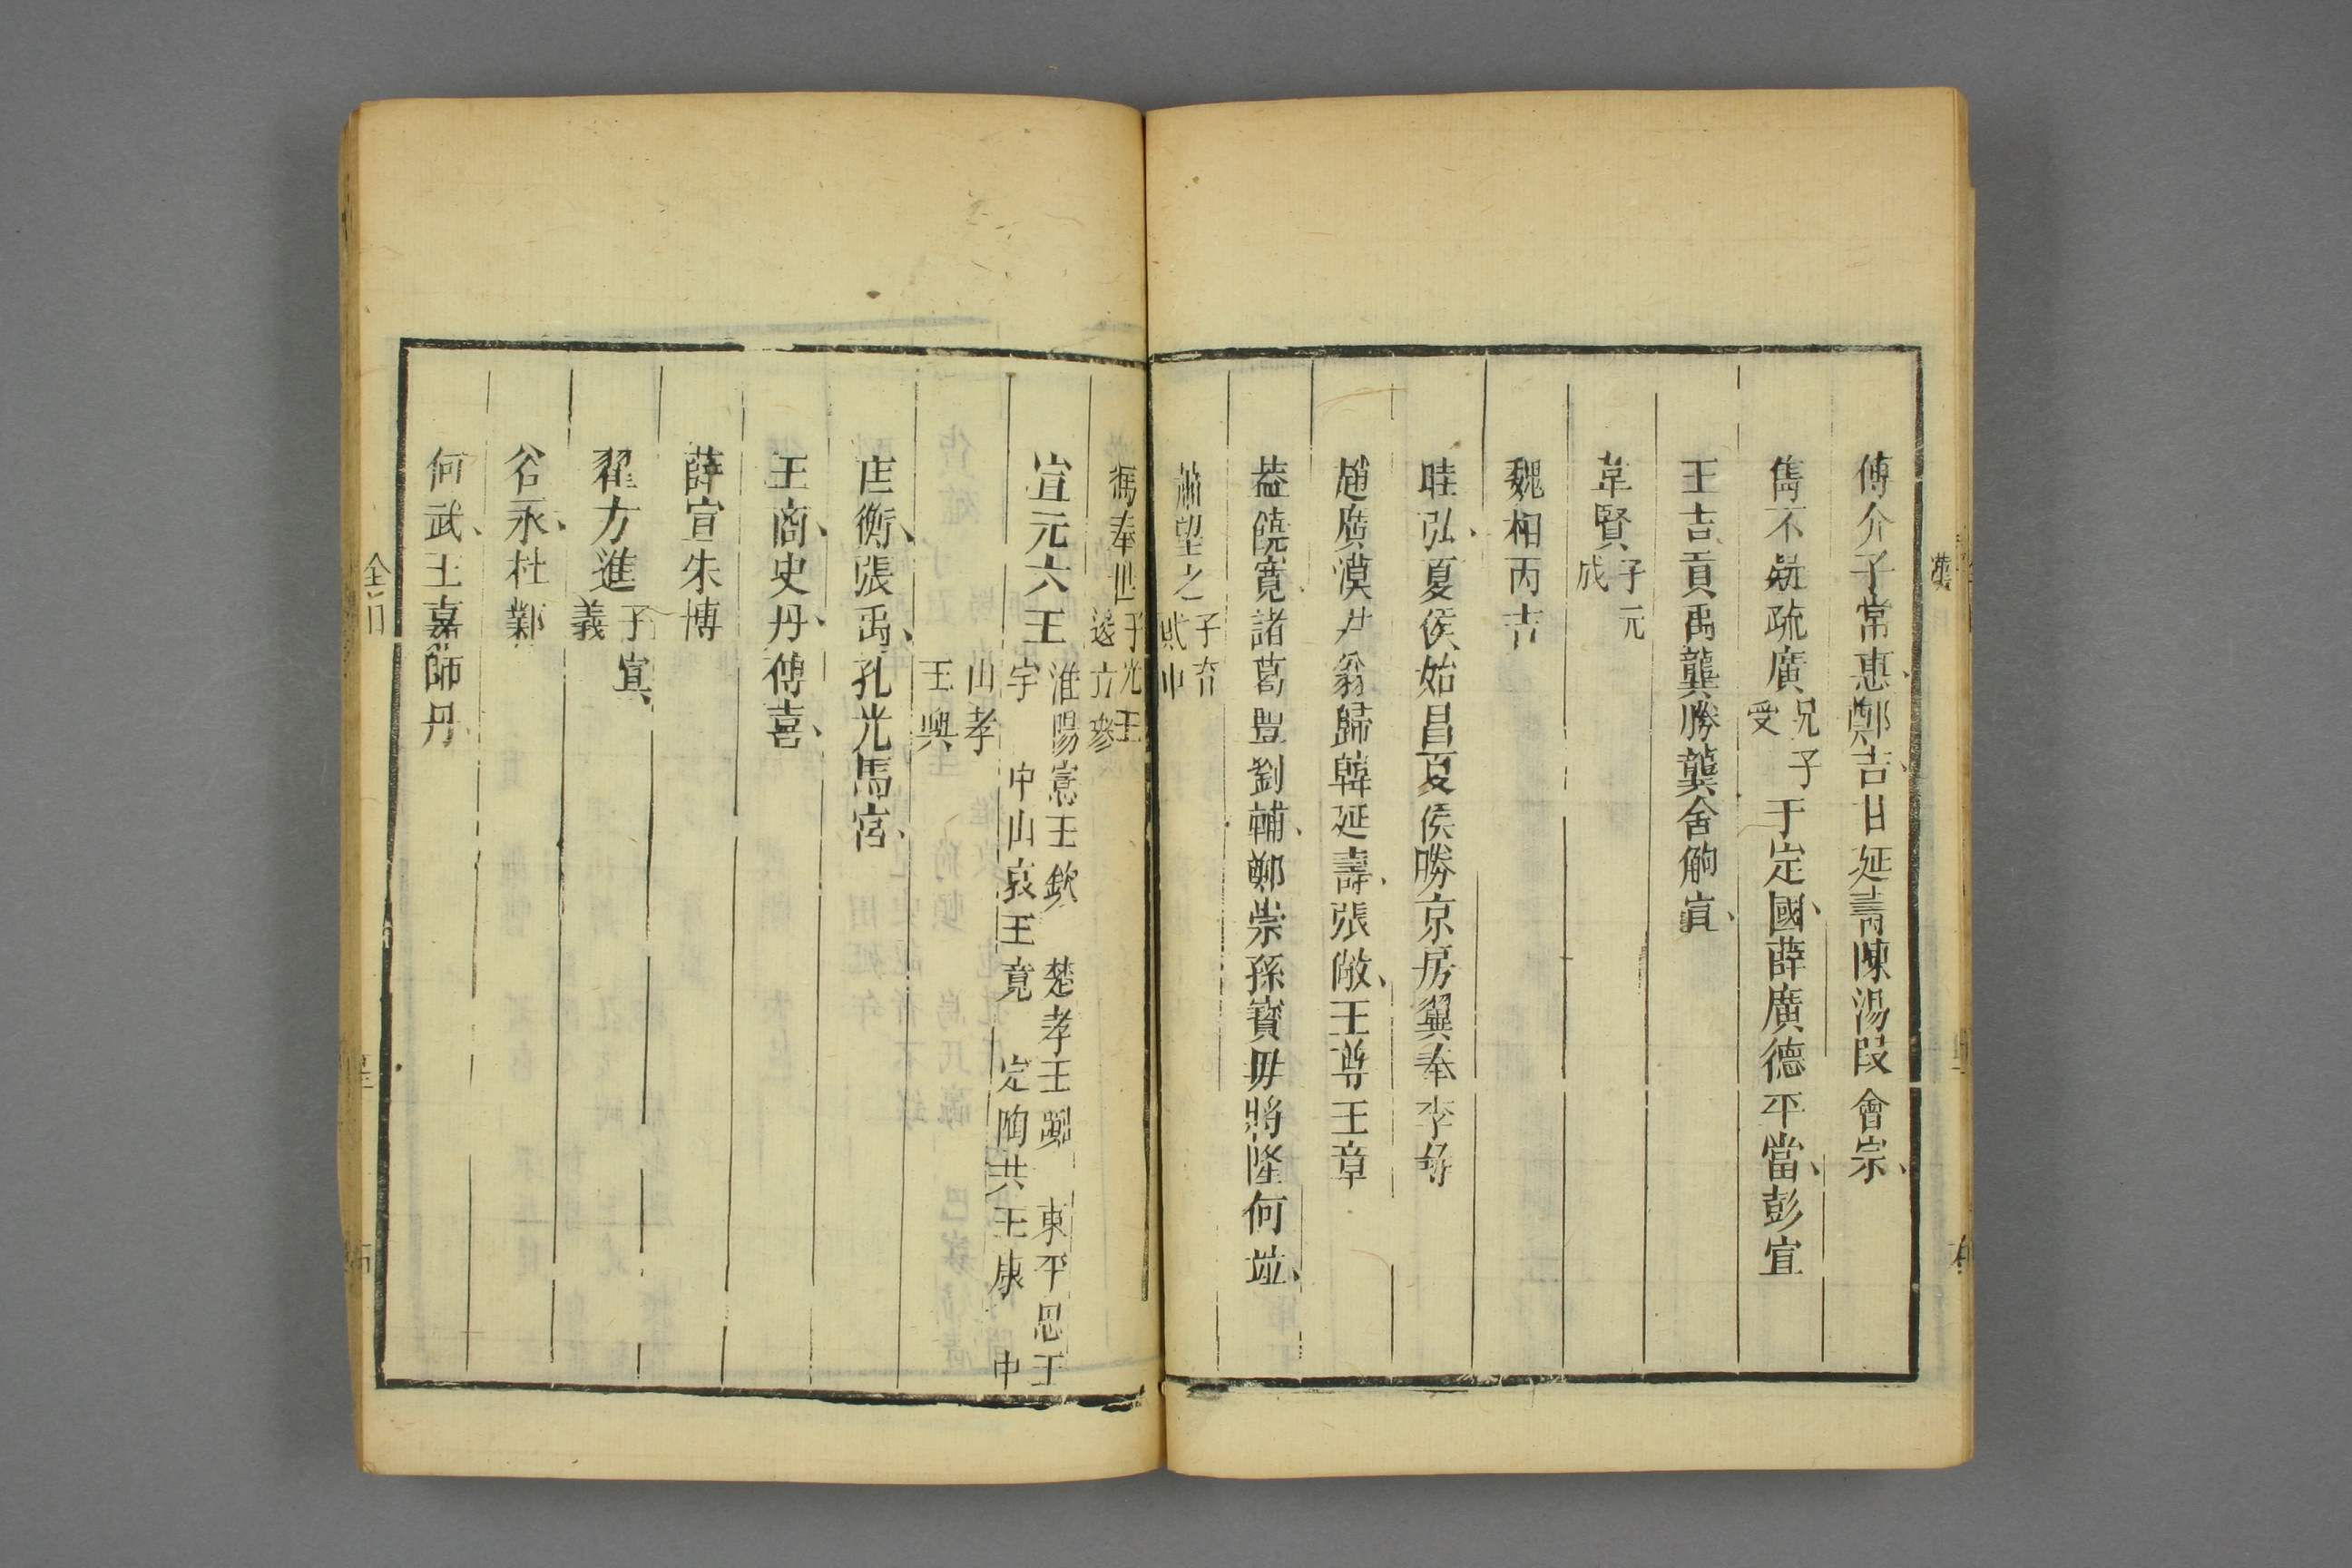 傅介子常惠、鄭吉、甘延壽陳湯段會宗、
雋不疑疏廣兄子受于定國、薛廣德平當、彭宣
王吉貢禹龔勝龔舍鮑宣、
韋賢子元成
魏相丙吉
眭弘、夏侯始昌夏侯勝京房翼奉李尋
趙廣漢尹翁歸韓延壽、張敞、王尊王章
葢饒寛、諸葛豊劉輔、鄭崇孫寳毋將隆何並、
蕭望之子育咸由
馮奉世子光王逡立參
宣元六王淮陽憲王欽 楚孝王囂 東平思王宇 中山哀王竟 定陶共王康 中山孝王興
匡衡、張禹、孔光馬宮、
王商、史丹、傅喜、
薛宣朱博
翟方進子宣義
谷永、杜鄴
何武、王嘉師丹、
全目